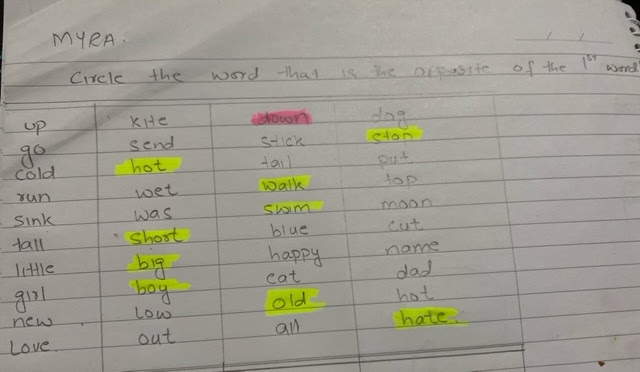 MYRA.
Circle the word that is the opposite of the 1ST word
up kite down dog
go send stick stop
cold hot tail put
run wet walk top
sink was swim moon
tall short blue cut
little big happy name
girl boy cat dad
new low old hot
Love. out all hate.